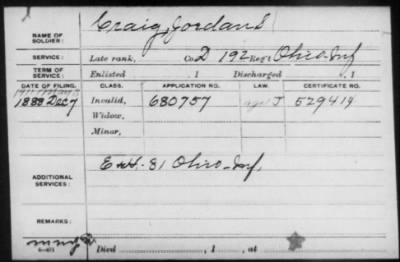 Craig, Jordan S
NAME OF SOLDIER:
SERVICE: Late rank, Co. D 192 Reg't Ohio Inf
TERM OF SERVICE: Enlisted , 1 Discharged , 1
DATE OF FILING. CLASS. APPLICATION NO. LAW. CERTIFICATE NO.
1888 Dec 7 Invalid, 680757 J 529419
Widow,
Minor,
ADDITIONAL SERVICES: E 81 Ohio Inf,
REMARKS:
Died , 1 , at